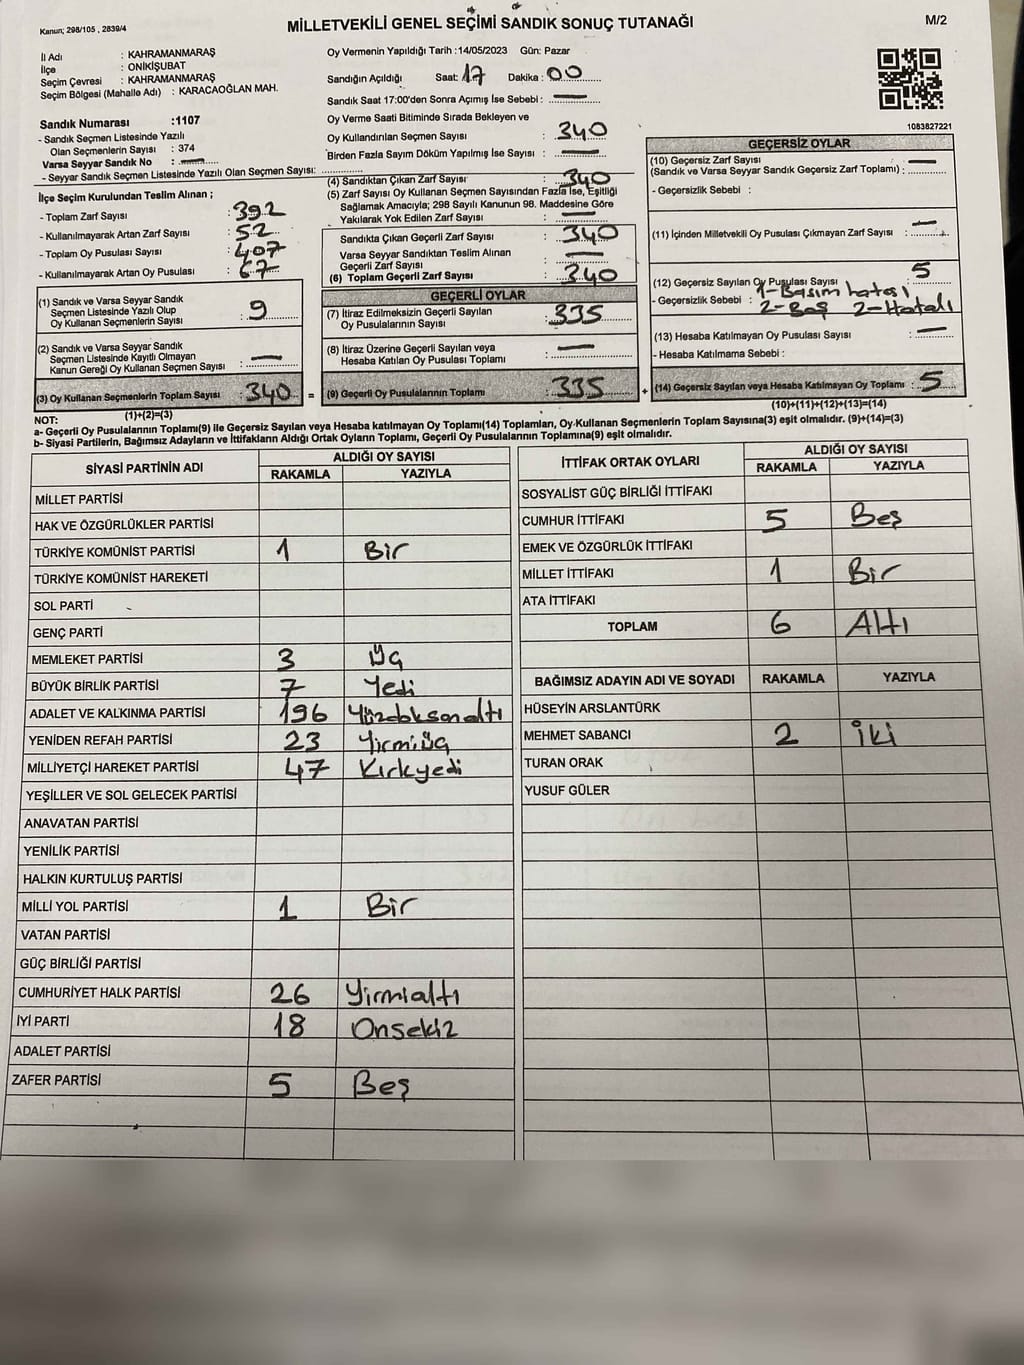 Kanun; 298/105 , 2839/4
MİLLETVEKİLİ GENEL SEÇİMİ SANDIK SONUÇ TUTANAĞI
M/2
İl Adı : KAHRAMANMARAŞ
İlçe : ONİKİŞUBAT
Seçim Çevresi : KAHRAMANMARAŞ
Seçim Bölgesi (Mahalle Adı) : KARACAOĞLAN MAH.
Sandık Numarası :1107
- Sandık Seçmen Listesinde Yazılı
Olan Seçmenlerin Sayısı : 374
Varsa Seyyar Sandık No : —
- Seyyar Sandık Seçmen Listesinde Yazılı Olan Seçmen Sayısı:
Oy Vermenin Yapıldığı Tarih :14/05/2023 Gün: Pazar
Sandığın Açıldığı Saat: 17 Dakika : 00
Sandık Saat 17:00'den Sonra Açımış İse Sebebi : —
Oy Verme Saati Bitiminde Sırada Bekleyen ve
Oy Kullandırılan Seçmen Sayısı : 340
Birden Fazla Sayım Döküm Yapılmış İse Sayısı : —
1083827221
İlçe Seçim Kurulundan Teslim Alınan ;
- Toplam Zarf Sayısı : 392
- Kullanılmayarak Artan Zarf Sayısı : 52
- Toplam Oy Pusulası Sayısı : 407
- Kullanılmayarak Artan Oy Pusulası : 67
(1) Sandık ve Varsa Seyyar Sandık
Seçmen Listesinde Yazılı Olup
Oy Kullanan Seçmenlerin Sayısı : 9
(2) Sandık ve Varsa Seyyar Sandık
Seçmen Listesinde Kayıtlı Olmayan
Kanun Gereği Oy Kullanan Seçmen Sayısı : —
(3) Oy Kullanan Seçmenlerin Toplam Sayısı : 340 =
(1)+(2)=(3)
(4) Sandıktan Çıkan Zarf Sayısı : 340
(5) Zarf Sayısı Oy Kullanan Seçmen Sayısından Fazla İse, Eşitliği
Sağlamak Amacıyla; 298 Sayılı Kanunun 98. Maddesine Göre
Yakılarak Yok Edilen Zarf Sayısı : —
Sandıkta Çıkan Geçerli Zarf Sayısı : 340
Varsa Seyyar Sandıktan Teslim Alınan
Geçerli Zarf Sayısı : —
(6) Toplam Geçerli Zarf Sayısı : 340
GEÇERLİ OYLAR
(7) İtiraz Edilmeksizin Geçerli Sayılan
Oy Pusulalarının Sayısı : 335
(8) İtiraz Üzerine Geçerli Sayılan veya
Hesaba Katılan Oy Pusulası Toplamı : —
(9) Geçerli Oy Pusulalarının Toplamı : 335 +
GEÇERSİZ OYLAR
(10) Geçersiz Zarf Sayısı
(Sandık ve Varsa Seyyar Sandık Geçersiz Zarf Toplamı) : —
- Geçersizlik Sebebi :
(11) İçinden Milletvekili Oy Pusulası Çıkmayan Zarf Sayısı : —
(12) Geçersiz Sayılan Oy Pusulası Sayısı : 5
- Geçersizlik Sebebi : 1-Basım hatası
2-Boş 2-Hatalı
(13) Hesaba Katılmayan Oy Pusulası Sayısı : —
- Hesaba Katılmama Sebebi :
(14) Geçersiz Sayılan veya Hesaba Katılmayan Oy Toplamı : 5
(10)+(11)+(12)+(13)=(14)
NOT:
a- Geçerli Oy Pusulalarının Toplamı(9) ile Geçersiz Sayılan veya Hesaba katılmayan Oy Toplamı(14) Toplamları, Oy Kullanan Seçmenlerin Toplam Sayısına(3) eşit olmalıdır. (9)+(14)=(3)
b- Siyasi Partilerin, Bağımsız Adayların ve İttifakların Aldığı Ortak Oyların Toplamı, Geçerli Oy Pusulalarının Toplamına(9) eşit olmalıdır.
SİYASİ PARTİNİN ADI ALDIĞI OY SAYISI
RAKAMLA YAZIYLA
MİLLET PARTİSİ
HAK VE ÖZGÜRLÜKLER PARTİSİ
TÜRKİYE KOMÜNİST PARTİSİ 1 Bir
TÜRKİYE KOMÜNİST HAREKETİ
SOL PARTİ
GENÇ PARTİ
MEMLEKET PARTİSİ 3 Üç
BÜYÜK BİRLİK PARTİSİ 7 Yedi
ADALET VE KALKINMA PARTİSİ 196 Yüzdoksanaltı
YENİDEN REFAH PARTİSİ 23 Yirmiüç
MİLLİYETÇİ HAREKET PARTİSİ 47 Kırkyedi
YEŞİLLER VE SOL GELECEK PARTİSİ
ANAVATAN PARTİSİ
YENİLİK PARTİSİ
HALKIN KURTULUŞ PARTİSİ
MİLLİ YOL PARTİSİ 1 Bir
VATAN PARTİSİ
GÜÇ BİRLİĞİ PARTİSİ
CUMHURİYET HALK PARTİSİ 26 Yirmialtı
İYİ PARTİ 18 Onsekiz
ADALET PARTİSİ
ZAFER PARTİSİ 5 Beş
İTTİFAK ORTAK OYLARI ALDIĞI OY SAYISI
RAKAMLA YAZIYLA
SOSYALİST GÜÇ BİRLİĞİ İTTİFAKI
CUMHUR İTTİFAKI 5 Beş
EMEK VE ÖZGÜRLÜK İTTİFAKI
MİLLET İTTİFAKI 1 Bir
ATA İTTİFAKI
TOPLAM 6 Altı
BAĞIMSIZ ADAYIN ADI VE SOYADI RAKAMLA YAZIYLA
HÜSEYİN ARSLANTÜRK
MEHMET SABANCI 2 İki
TURAN ORAK
YUSUF GÜLER